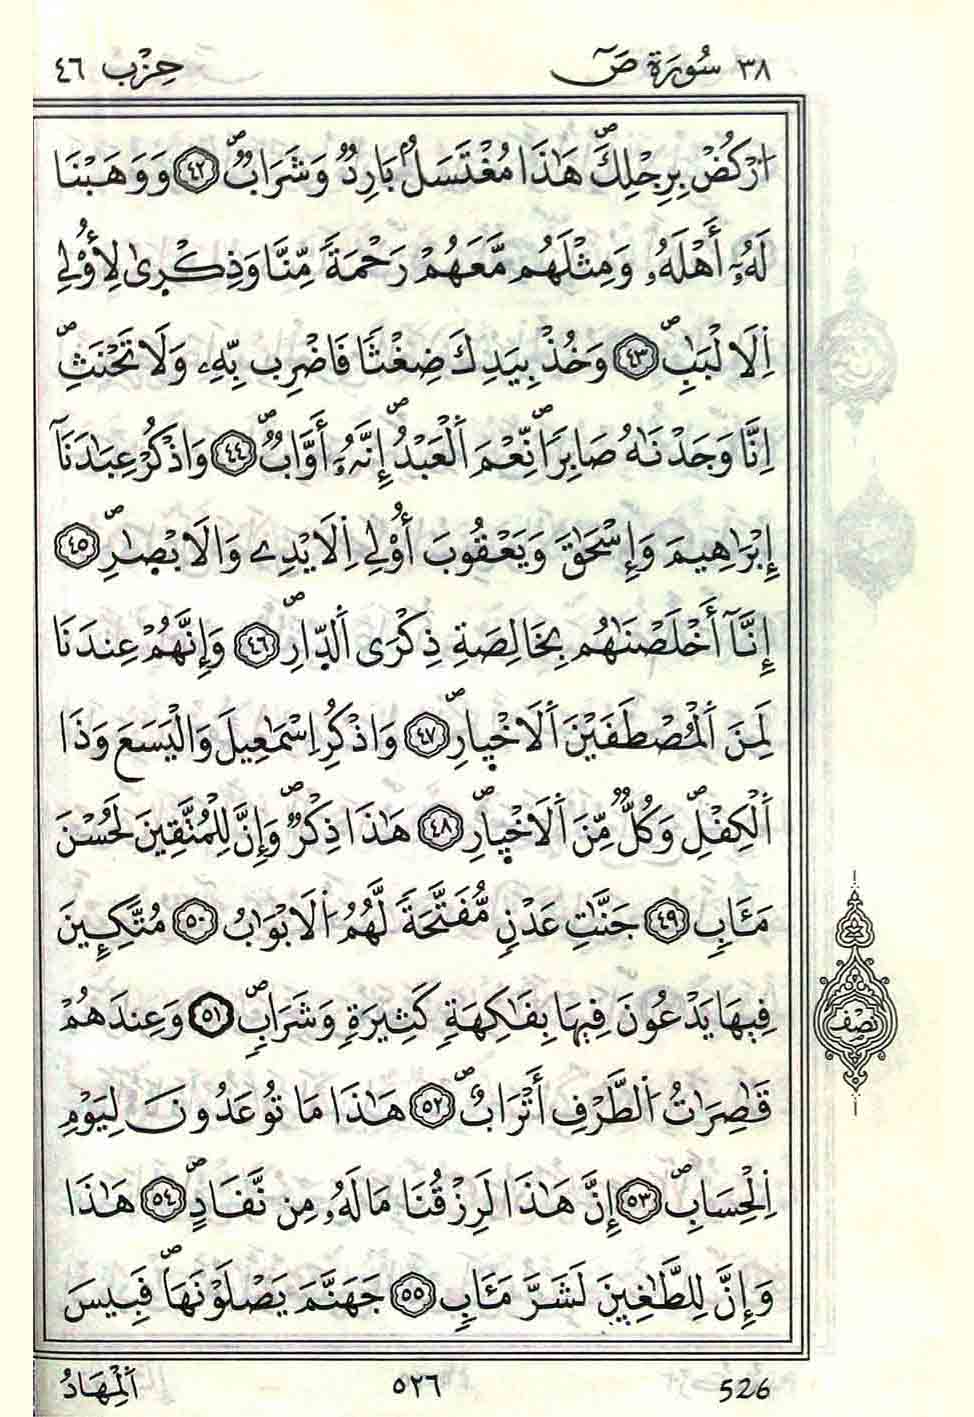 ٣٨ سُورَةُ صٓ حِزْب ٤٦
اَرْكُضْ بِرِجْلِكَۖ هَٰذَا مُغْتَسَلُۢ بَارِدٞ وَشَرَابٞۖ ٤٢ وَوَهَبْنَا
لَهُۥٓ أَهْلَهُۥ وَمِثْلَهُم مَّعَهُمْ رَحْمَةٗ مِّنَّا وَذِكْر۪يٰ لِأُوْلِے
اِ۬لَالْبَٰبِۖ ٤٣ وَخُذْ بِيَدِكَ ضِغْثٗا فَاضْرِب بِّهِۦ وَلَا تَحْنَثِۖ
اِنَّا وَجَدْنَٰهُ صَابِراٗۖ نِّعْمَ اَ۬لْعَبْدُۖ إِنَّهُۥٓ أَوَّابٞۖ ٤٤ وَاذْكُرْ عِبَٰدَنَآ
إِبْرَاهِيمَ وَإِسْحَٰقَ وَيَعْقُوبَ أُوْلِے اِ۬لَايْدِے وَالَابْصٰ۪رِۖ ٤٥
إِنَّآ أَخْلَصْنَٰهُم بِخَالِصَةِ ذِكْرَى اَ۬لدّ۪ارِۖ ٤٦ وَإِنَّهُمْ عِندَنَا
لَمِنَ اَ۬لْمُصْطَفَيْنَ اَ۬لَاخْي۪ارِۖ ٤٧ وَاذْكُرِ اِسْمَٰعِيلَ وَالْيَسَعَ وَذَا
اَ۬لْكِفْلِۖ وَكُلّٞ مِّنَ اَ۬لَاخْي۪ارِۖ ٤٨ هَٰذَا ذِكْرٞۖ وَإِنَّ لِلْمُتَّقِينَ لَحُسْنَ
مَـَٔابِ ٤٩ جَنَّٰتِ عَدْنٖ مُّفَتَّحَةٗ لَّهُمُ اُ۬لَابْوَٰبُ ٥٠ مُتَّكِـِٕينَ
فِيهَا يَدْعُونَ فِيهَا بِفَٰكِهَةٖ كَثِيرَةٖ وَشَرَابٖۖ ٥١ وَعِندَهُمْ
قَٰصِرَٰتُ اُ۬لطَّرْفِ أَتْرَابٌۖ ٥٢ هَٰذَا مَا تُوعَدُونَ لِيَوْمِ
اِ۬لْحِسَابِۖ ٥٣ إِنَّ هَٰذَا لَرِزْقُنَا مَا لَهُۥ مِن نَّفَادٍۖ ٥٤ هَٰذَا
وَإِنَّ لِلطَّٰغِينَ لَشَرَّ مَـَٔابٖ ٥٥ جَهَنَّمَ يَصْلَوْنَهَاۖ فَبِيسَ
نِصْف
اَ۬لْمِهَادُ ٥٢٦ 526